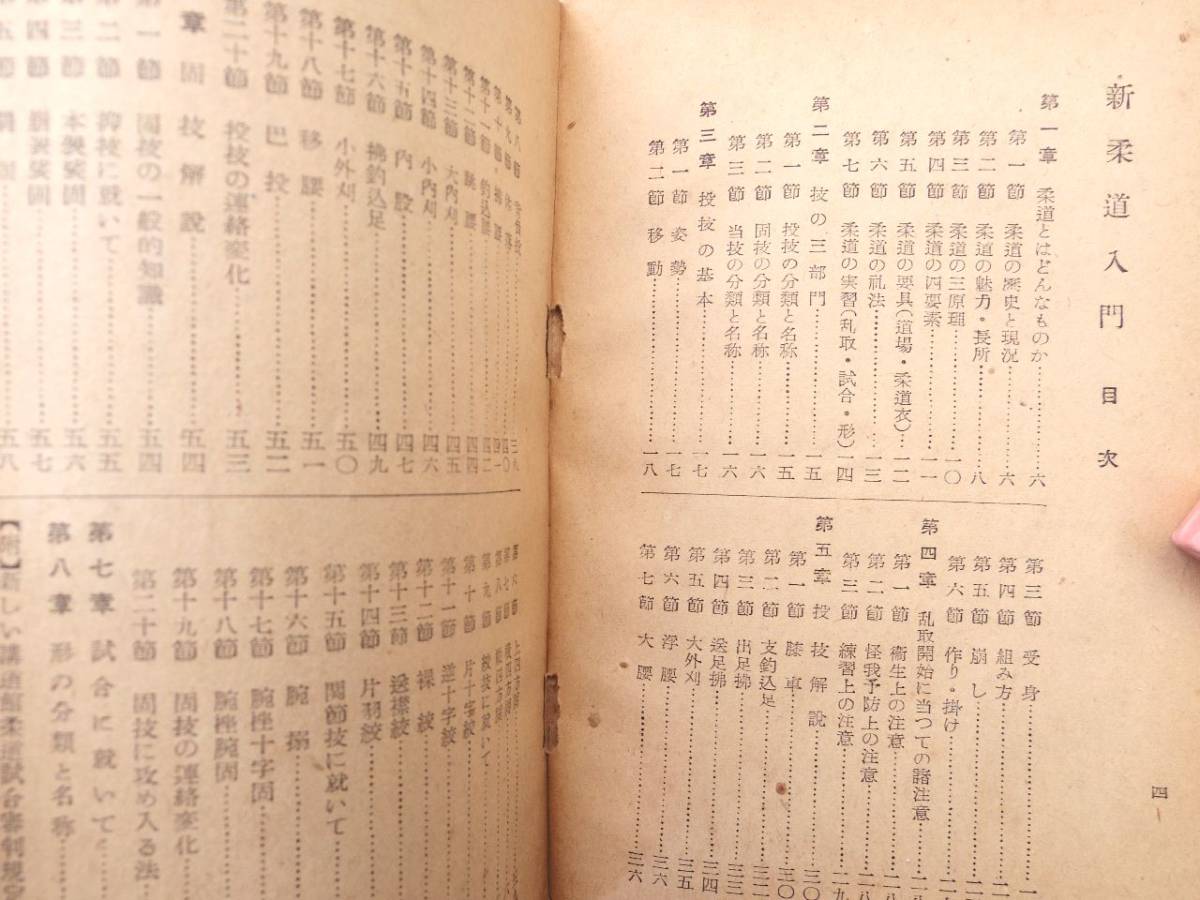 新柔道入門 目次
第一章 柔道とはどんなものか…………六
第一節 柔道の歴史と現況…………六
第二節 柔道の魅力・長所…………八
第三節 柔道の三原理…………一〇
第四節 柔道の四要素…………一一
第五節 柔道の要具(道場・柔道衣)…………一二
第六節 柔道の礼法…………一三
第七節 柔道の実習(乱取・試合・形)…………一四
第二章 技の三部門…………一五
第一節 投技の分類と名称…………一五
第二節 固技の分類と名称…………一六
第三節 当技の分類と名称…………一六
第三章 投技の基本…………一七
第一節 姿勢…………一七
第二節 移動…………一八
第三節 受身…………
第四節 組み方…………
第五節 崩し…………
第六節 作り・掛け…………
第四章 乱取開始に当つての諸注意…………
第一節 衛生上の注意…………
第二節 怪我予防上の注意…………
第三節 練習上の注意…………二九
第五章 投技解説…………三〇
第一節 膝車…………三〇
第二節 支釣込足…………三二
第三節 出足払…………三三
第四節 送足払…………三四
第五節 大外刈…………三五
第六節 浮腰…………三六
第七節 大腰…………三六
四
第十三節 大内刈…………四五
第十四節 小内刈…………四六
第十五節 内股…………四七
第十六節 払釣込足…………四九
第十七節 小外刈…………五〇
第十八節 移腰…………五一
第十九節 巴投…………五二
第二十節 投技の連絡変化…………五三
章 固技解説…………五四
第一節 固技の一般的知識…………五四
第二節 抑技に就いて…………五五
第三節 本袈裟固…………五六
第四節 崩袈裟固…………五七
第五節
五八
第十節 片十字絞…………
第十一節 逆十字絞…………
第十二節 裸絞…………
第十三節 送襟絞…………
第十四節 片羽絞…………
第十五節 関節技に就いて…………
第十六節 腕搦…………
第十七節 腕挫十字固…………
第十八節 腕挫腕固…………
第十九節 固技の連絡変化…………
第二十節 固技に攻め入る法…………
第七章 試合に就いて…………
第八章 形の分類と名称…………
【附】新しい講道館柔道試合審判規定